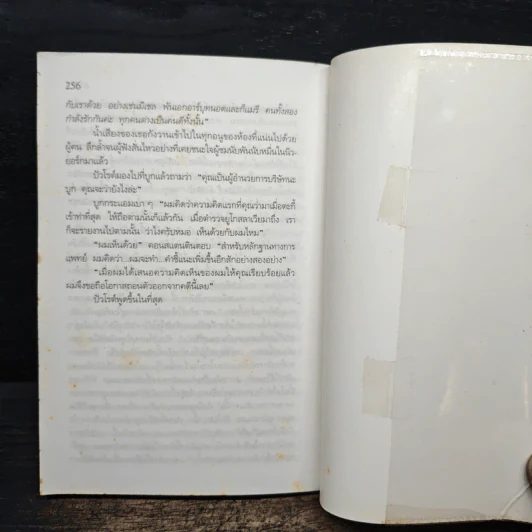 256
กับเราด้วย อย่างเช่นมิเชล พันเอกอาร์บุทนอตและก็แมรี คนทั้งสอง
กำลังรักกันค่ะ ทุกคนต่างเป็นคนดีทั้งนั้น"
น้ำเสียงของเธอกังวานเข้าไปในทุกอนูของห้องที่แน่นไปด้วย
ผู้คน ลึกล้ำจนผู้ฟังสั่นไหวอย่างที่เคยชนะใจผู้ชมนับพันนับหมื่นในนิว-
ยอร์กมาแล้ว
ปัวโรต์มองไปที่บูกแล้วถามว่า "คุณเป็นผู้อำนวยการบริษัทนะ
บูก คุณจะว่ายังไงล่ะ"
บูกกระแอมเบา ๆ "ผมคิดว่าความคิดแรกที่คุณว่ามาเมื่อตะกี้
เข้าท่าที่สุด ให้ถือตามนั้นก็แล้วกัน เมื่อตำรวจยูโกสลาเวียมาถึง เรา
ก็จะรายงานไปตามนั้น ว่าไงครับหมอ เห็นด้วยกับผมไหม"
"ผมเห็นด้วย" คอนสแตนตินตอบ "สำหรับหลักฐานทางการ
แพทย์ ผมคิดว่า ผมจะทำ...คำชี้แนะเพิ่มขึ้นอีกสักอย่างสองอย่าง"
"เมื่อผมได้เสนอความคิดเห็นของผมให้คุณเรียบร้อยแล้ว
ผมจึงขอถือโอกาสถอนตัวออกจากคดีนี้เลย"
ปัวโรต์พูดขึ้นในที่สุด